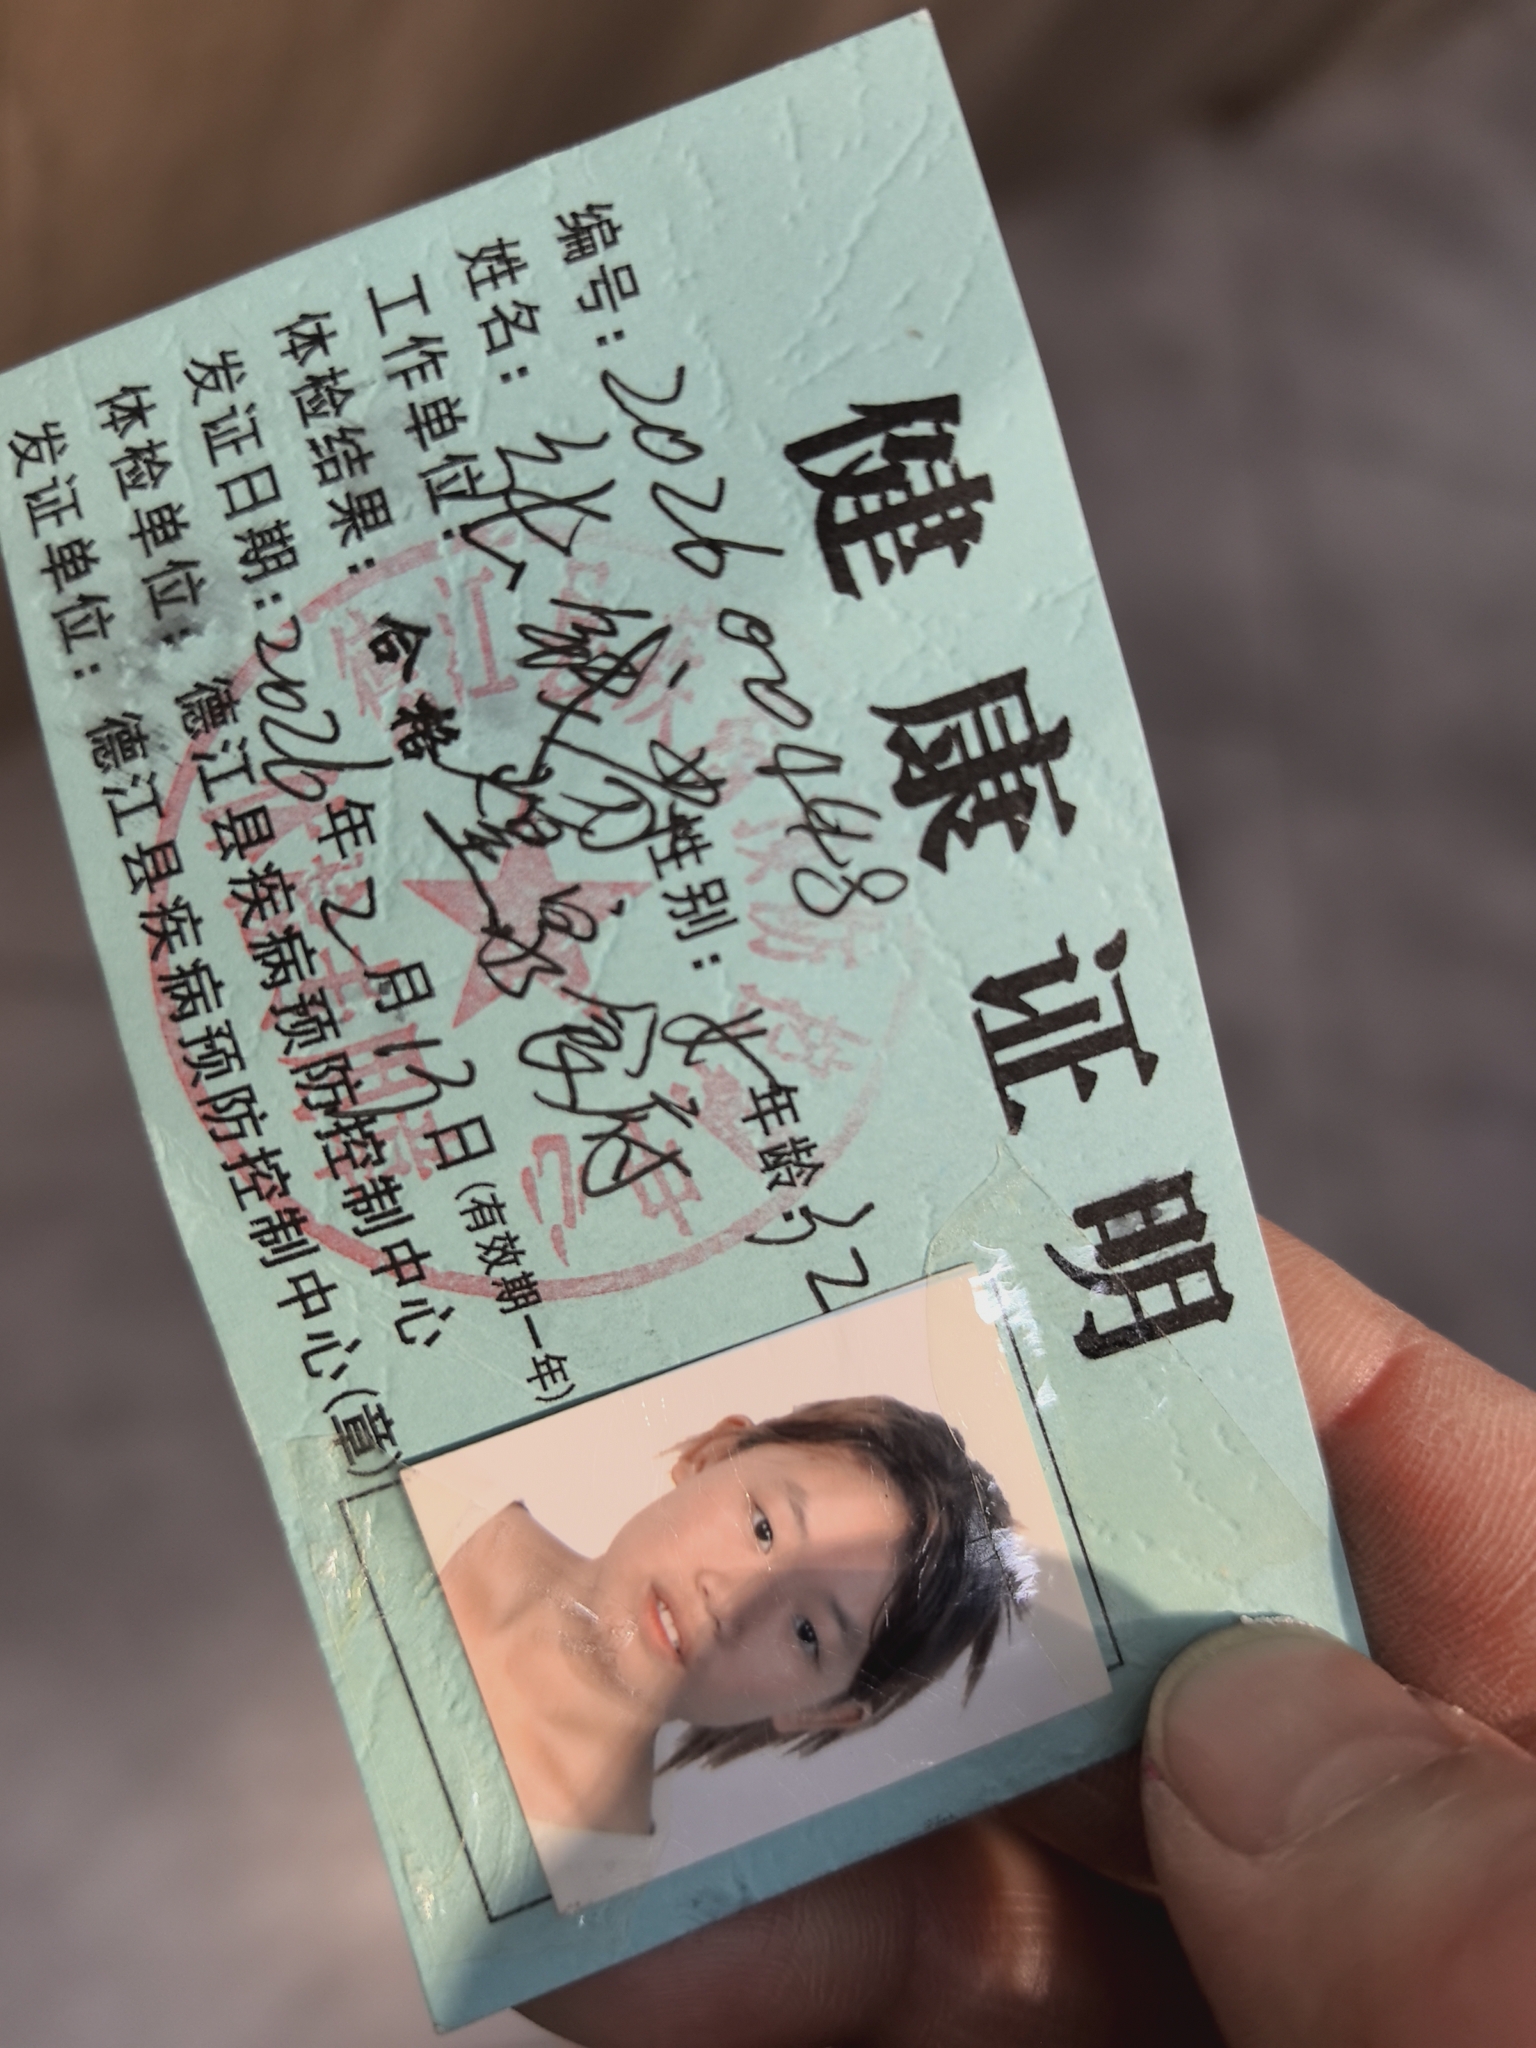 健康证明
编号:2026020448
姓名:张 性别:女 年龄:32
工作单位:
体检结果:合格
发证日期:2026年2月12日(有效期一年)
体检单位:德江县疾病预防控制中心
发证单位:德江县疾病预防控制中心(章)